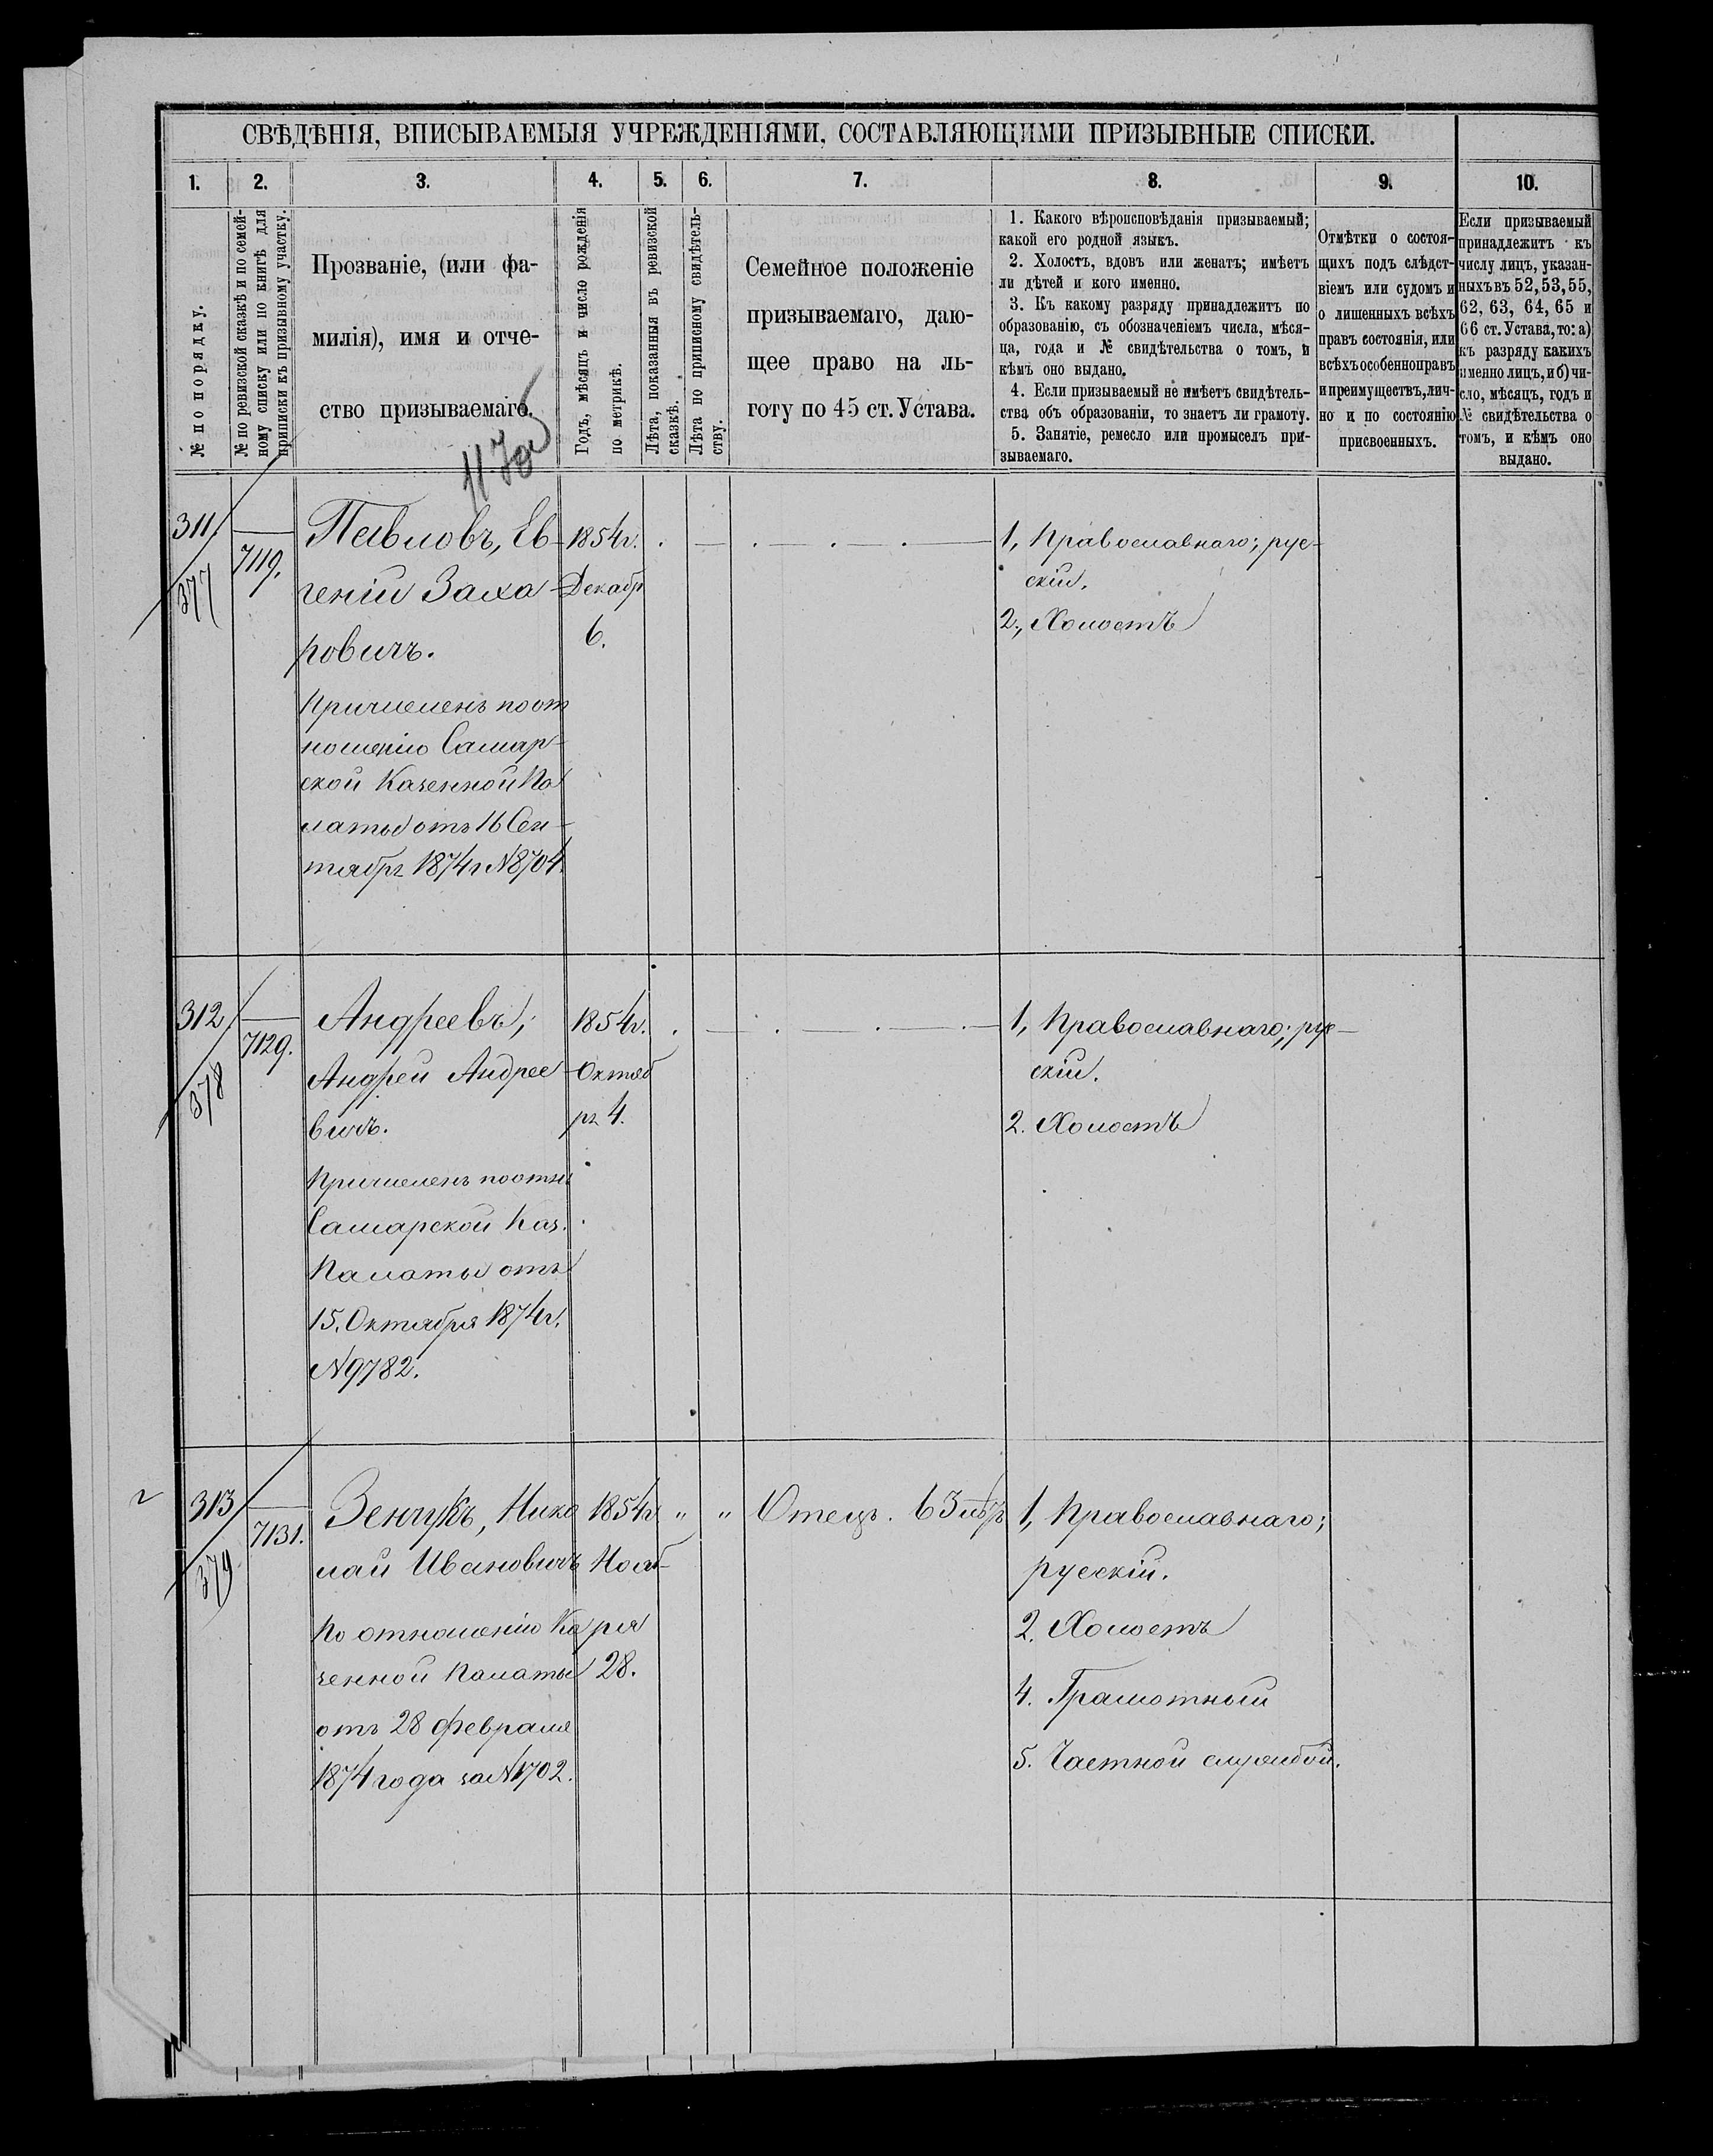 СВѢДѢНІЯ, ВПИСЫВАЕМЫЯ УЧРЕЖДЕНІЯМИ, СОСТАВЛЯЮЩИМИ ПРИЗЫВНЫЕ СПИСКИ.
1.
2.
3.
4.
5.
6.
7.
8.
9.
10.
№ по порядку.
№ по ревизской сказкѣ и по семей-
ному списку или по книгѣ для
приписки къ призывному участку.
Прозваніе, (или фа-
милія), имя и отче-
ство призываемаго.
Годъ, мѣсяцъ и число рожденія
по метрикѣ.
Лѣта, показанныя въ ревизской
сказкѣ.
Лѣта по приписному свидѣтель-
ству.
Семейное положеніе
призываемаго, даю-
щее право на ль-
готу по 45 ст. Устава.
1. Какого вѣроисповѣданія призываемый;
какой его родной языкъ.
2. Холостъ, вдовъ или женатъ; имѣетъ
ли дѣтей и кого именно.
3. Къ какому разряду принадлежитъ по
образованію, съ обозначеніемъ числа, мѣся-
ца, года и № свидѣтельства о томъ, и
кѣмъ оно выдано.
4. Если призываемый не имѣетъ свидѣтель-
ства объ образованіи, то знаетъ ли грамоту.
5. Занятіе, ремесло или промыселъ при-
зываемаго.
Отмѣтки о состоя-
щихъ подъ слѣдст-
віемъ или судомъ и
о лишенныхъ всѣхъ
правъ состоянія, или
всѣхъ особенно правъ
и преимуществъ, лич-
но и по состоянію
присвоенныхъ.
Если призываемый
принадлежитъ къ
числу лицъ, указан-
ныхъ въ 52, 53, 55,
62, 63, 64, 65 и
66 ст. Устава, то: а)
къ разряду какихъ
именно лицъ, и б) чи-
сло, мѣсяцъ, годъ и
№ свидѣтельства о
томъ, и кѣмъ оно
выдано.
311/
377
7119.
Павловъ, Ев-
геній Заха-
ровичъ.
Причисленъ по от
ношенію Самар-
ской Казенной Па
латы отъ 16 Сен-
тябр. 1874 г N 8704.
1854 г.
Декабр
6.
1, Православнаго; рус-
скій.
2., Холостъ
312/
378
7129.
Андреевъ,
Андрей Андрее-
вичъ.
Причисленъ по отн.
Самарской Каз.
Палаты отъ
15. Октября 1874 г.
N 9782.
1854 г.
Октяб
р. 4.
1, Православнаго; рус-
скій.
2. Холостъ
313/
379
7131.
Зенчукъ, Нико
лай Ивановичъ
По отношенію Ка
зенной Палаты
отъ 28 февраля
1874 года за N 1702.
1854 г
Нояб-
ря
28.
" "
Отецъ. 63
1, Православнаго;
русскій.
2. Холостъ
4. Грамотный
5. Частной службой.